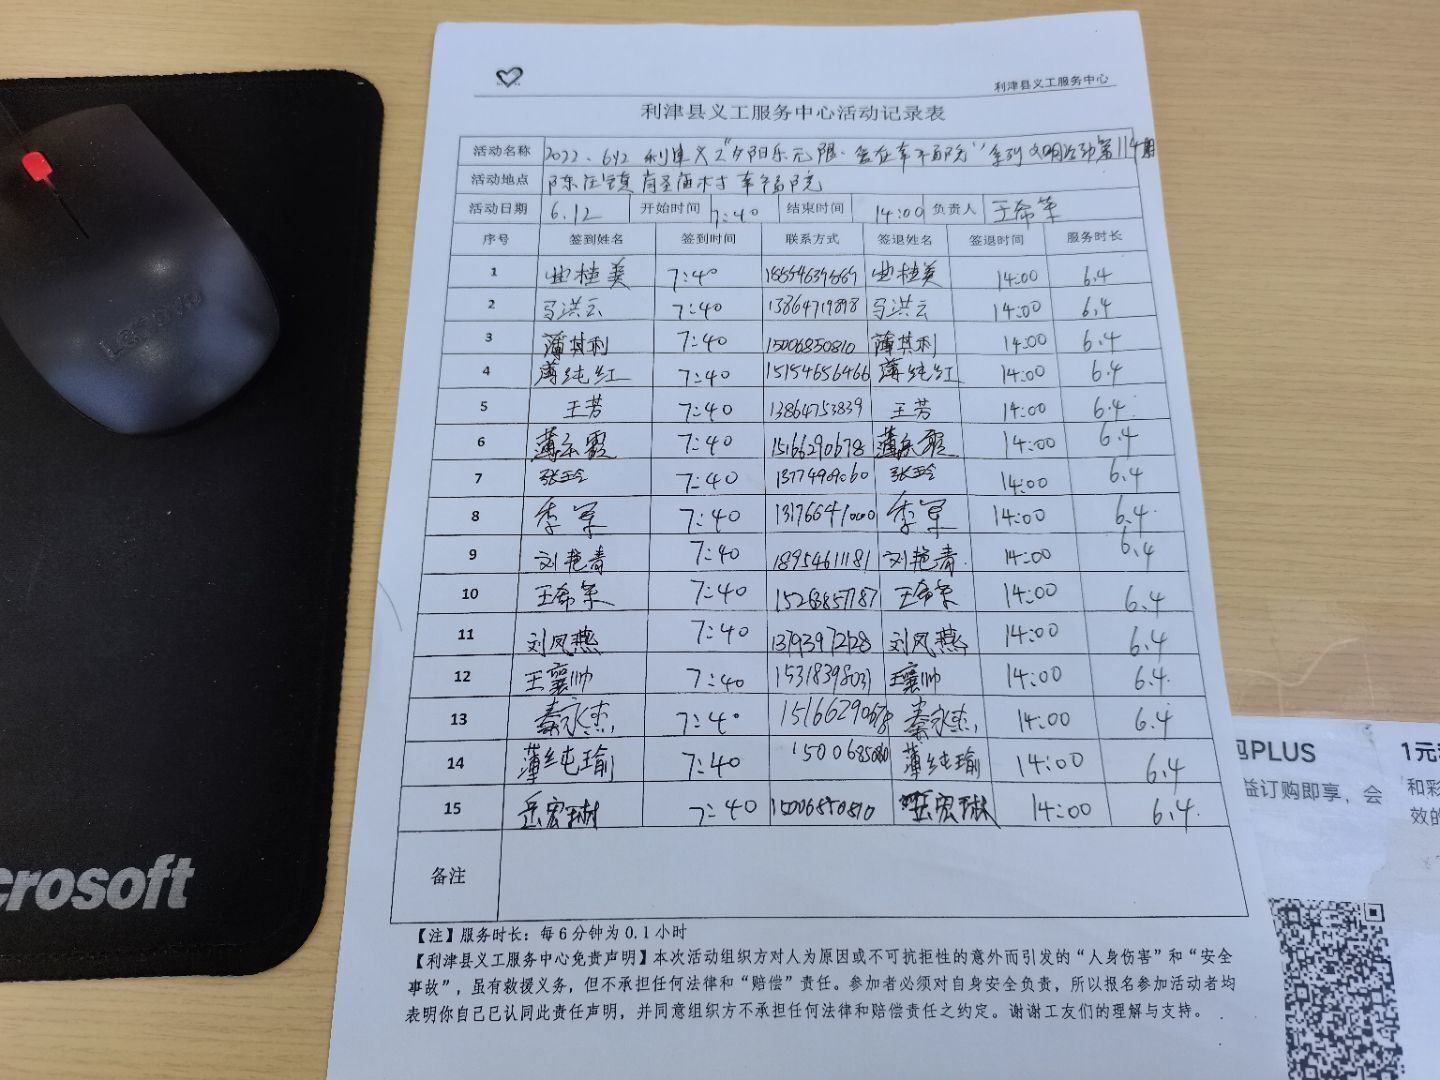 利津县义工服务中心
利津县义工服务中心活动记录表
活动名称 2022.6.12 利津义工"夕阳乐无限·爱在幸福院"系列文明活动第114期
活动地点 陈庄镇 村幸福院
活动日期 6.12 开始时间 7:40 结束时间 14:00 负责人 王希军
序号 签到姓名 签到时间 联系方式 签退姓名 签退时间 服务时长
1 曲桂美 7:40 曲桂美 14:00 6.4
2 马洪云 7:40 13864719898 马洪云 14:00 6.4
3 薄其利 7:40 15006850810 薄其利 14:00 6.4
4 薄纯红 7:40 15154656466 薄纯红 14:00 6.4
5 王芳 7:40 13864753839 王芳 14:00 6.4
6 薄东霞 7:40 15166290678 薄东霞 14:00 6.4
7 张玲 7:40 张玲 14:00 6.4
8 李军 7:40 李军 14:00 6.4
9 刘艳青 7:40 18954611181 刘艳青 14:00 6.4
10 王希军 7:40 王希军 14:00 6.4
11 刘凤燕 7:40 刘凤燕 14:00 6.4
12 王襄帅 7:40 15318398031 王襄帅 14:00 6.4
13 秦永杰 7:40 15166290678 秦永杰 14:00 6.4
14 薄纯瑜 7:40 薄纯瑜 14:00 6.4
15 岳宏琳 7:40 15006850810 岳宏琳 14:00 6.4
备注
【注】服务时长：每6分钟为0.1小时
【利津县义工服务中心免责声明】本次活动组织方对人为原因或不可抗拒性的意外而引发的“人身伤害”和“安全
事故”，虽有救援义务，但不承担任何法律和“赔偿”责任。参加者必须对自身安全负责，所以报名参加活动者均
表明你自己已认同此责任声明，并同意组织方不承担任何法律和赔偿责任之约定。谢谢工友们的理解与支持。
Lenovo
crosoft
PLUS
1元
益订购即享，会
和彩
效的